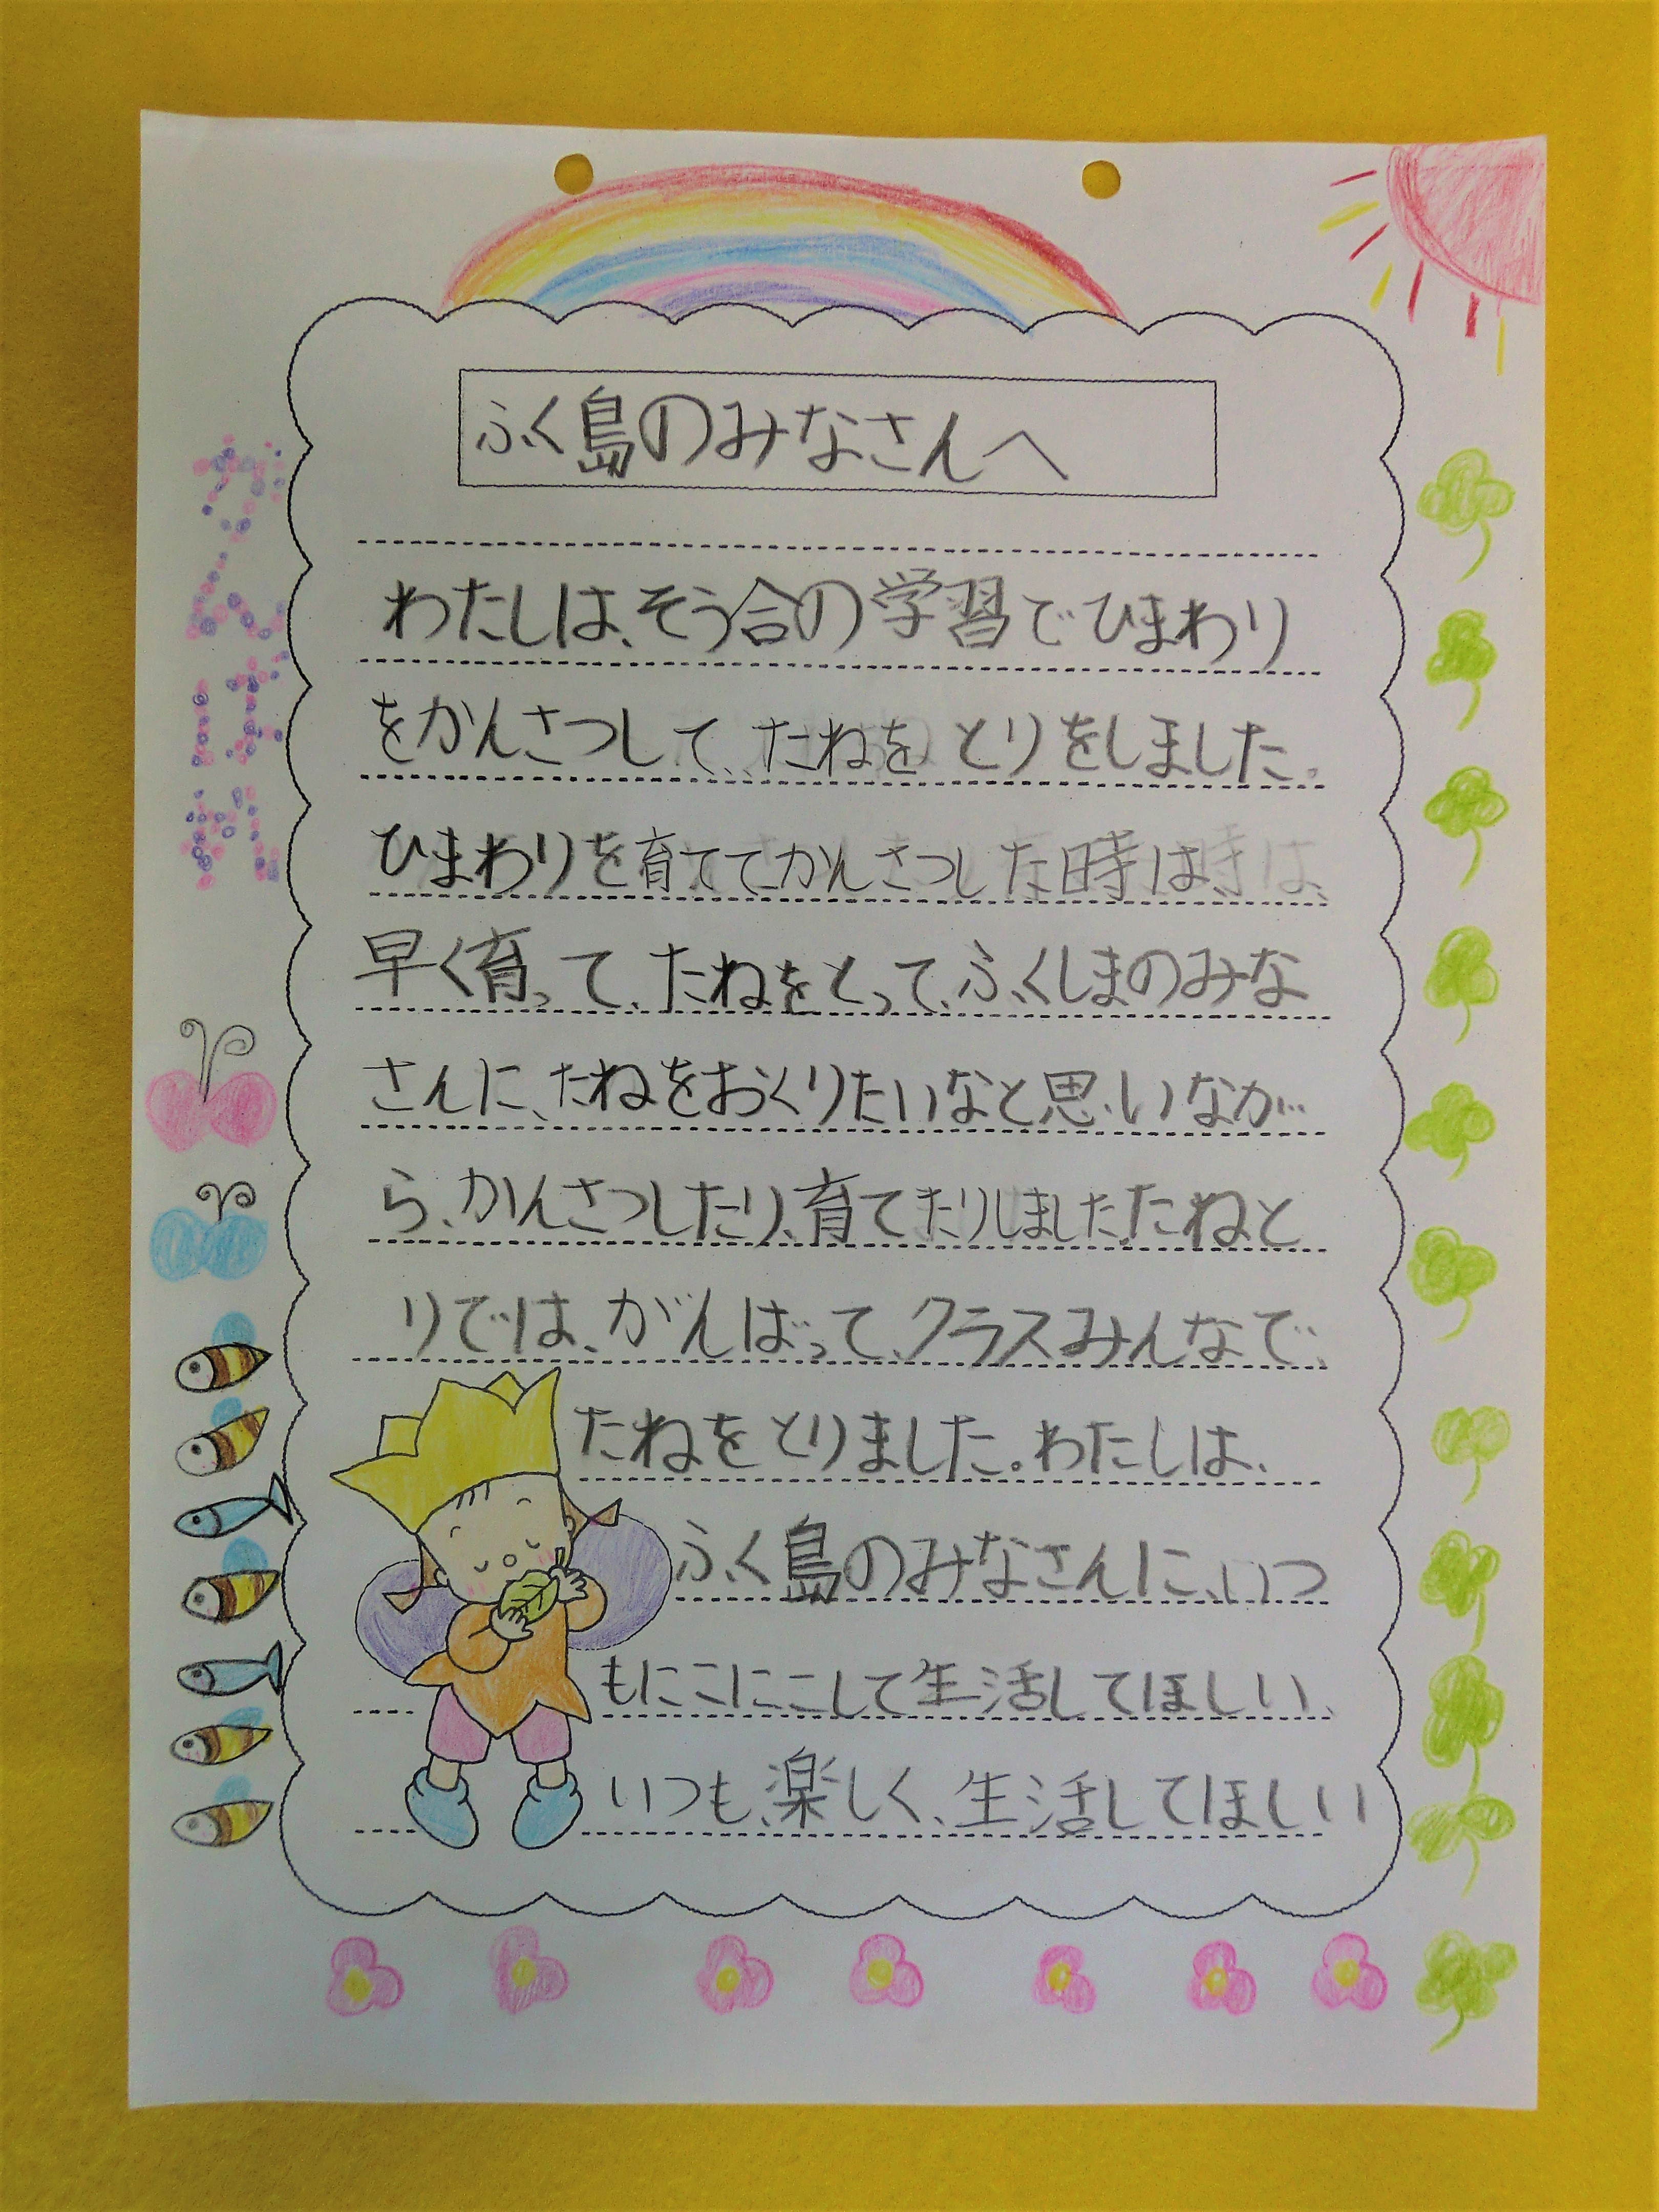 ふく島のみなさんへ
わたしは、そう合の学習でひまわり
をかんさつして、たねをとりをしました。
ひまわりを育ててかんさつした時は、
早く育って、たねをとって、ふくしまのみな
さんに、たねをおくりたいなと思いなが
ら、かんさつしたり、育てたりしました。たねと
りでは、がんばって、クラスみんなで、
たねをとりました。わたしは、
ふく島のみなさんに、いつ
もにこにこして生活してほしい、
いつも、楽しく、生活してほしい